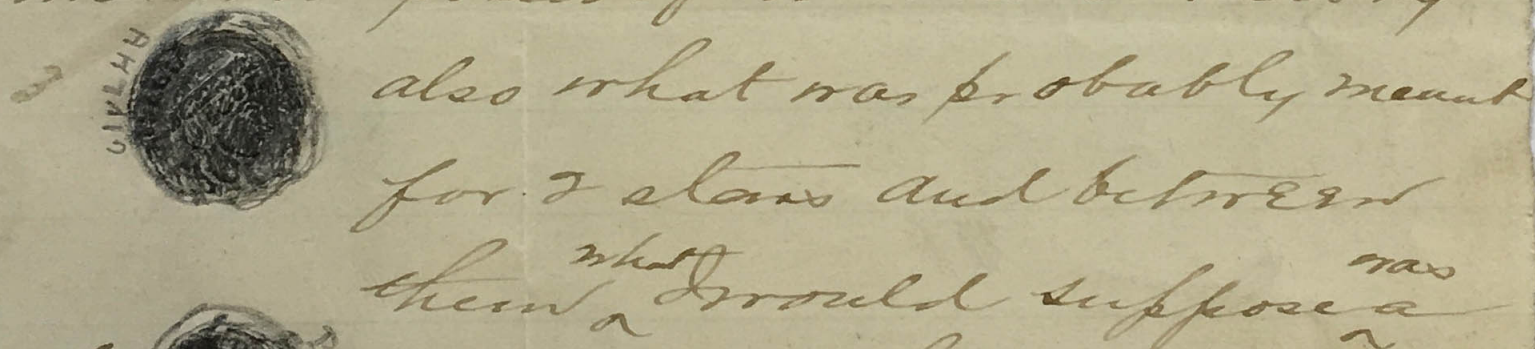 also what was probably meant
for 2 stars and between
them what I would suppose was a